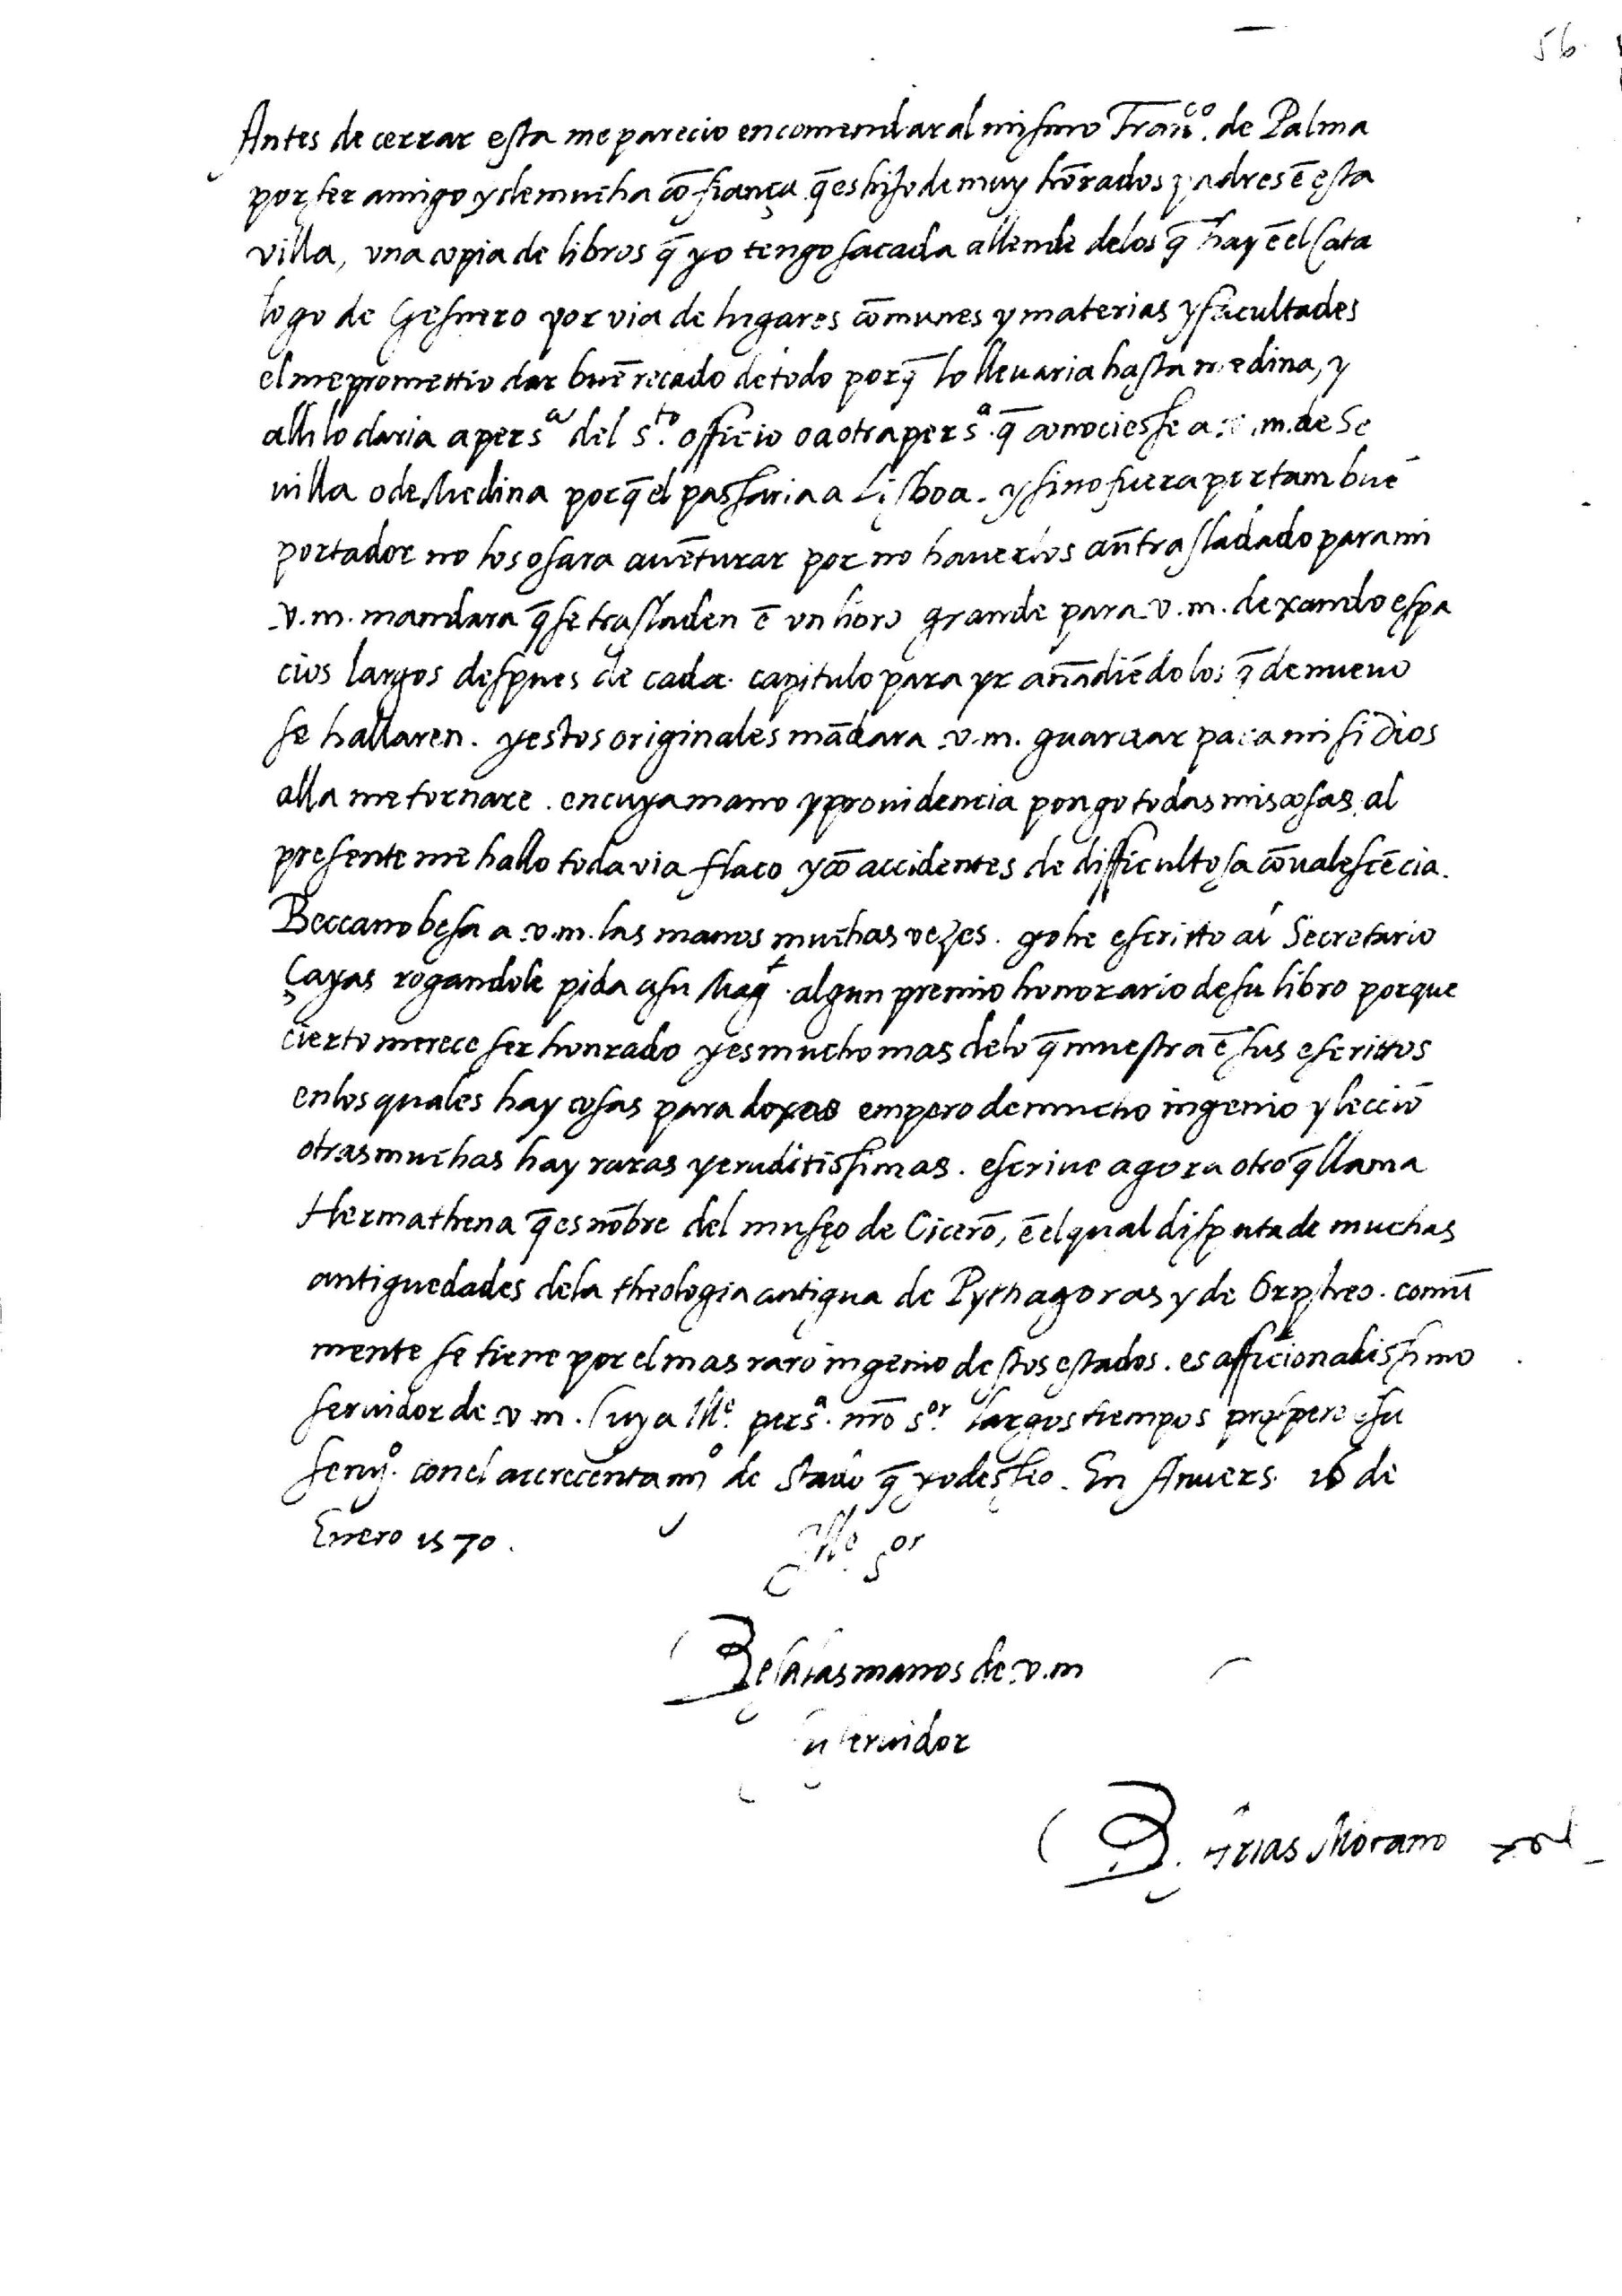 56.
Antes de cerrar esta me parecio encomendar al mismo Franco. de Palma
por ser amigo y de mucha cōfiança q̄ es hijo de muy hōrados padres ē esta
villa, una copia de libros q̄ yo tengo sacada allende delos q̄ hay ē el Cata
logo de Gesnero por via de lugares cōmunes y materias y facultades
el me promettio dar buē recado de todo porq̄ lo llevaria hasta medina, y
alli lo daria a persa del sto. officio o a otra persa. q̄ conociesse a v.m. de Se
uilla o de Medina porq̄ el passaria a Lisboa. y si no fuera por tam buē
portador no los osara avēturar por no haverlos aūn trasladado para mi
v.m. mandara q̄ se trasladen ē un libro grande para v.m. dexando espa
cios largos despues de cada capitulo para yr añadiēdo los q̄ de nuevo
se hallaren. y estos originales mādara v.m. guardar para mi si dios
alla me tornare. en cuya mano y providencia pongo todas mis cosas. al
presente me hallo toda via flaco y cō accidentes de difficultosa cōvalescēcia.
Beccano besa a v.m. las manos muchas vezes. yo he escritto al Secretario
Çayas rogandole pida a su Magt. algun premio honorario de su libro porque
cierto merece ser honrado y es mucho mas delo q̄ muestra ē sus escrittos
en los quales hay cosas paradoxas empero de mucho ingenio y lecciō
otras muchas hay raras y eruditissimas. escrive agora otro q̄ llama
Hermathena q̄ es nōbre del museo de Cicerō, ē el qual disputa de muchas
antiguedades dela theologia antiqua de Pythagoras y de Orpheo. comū
mente se tiene por el mas raro ingenio destos estados. es afficionadissimo
servidor de v.m. Cuya Ille. persa. nrō sor. largos tiempos prospere ē su
servio. con el accrecentamo de stado q̄ yo desseo. En Anvers. 16 de
Enero 1570.
Ille. sor
Besa las manos de v.m
su servidor
B. Arias Montano